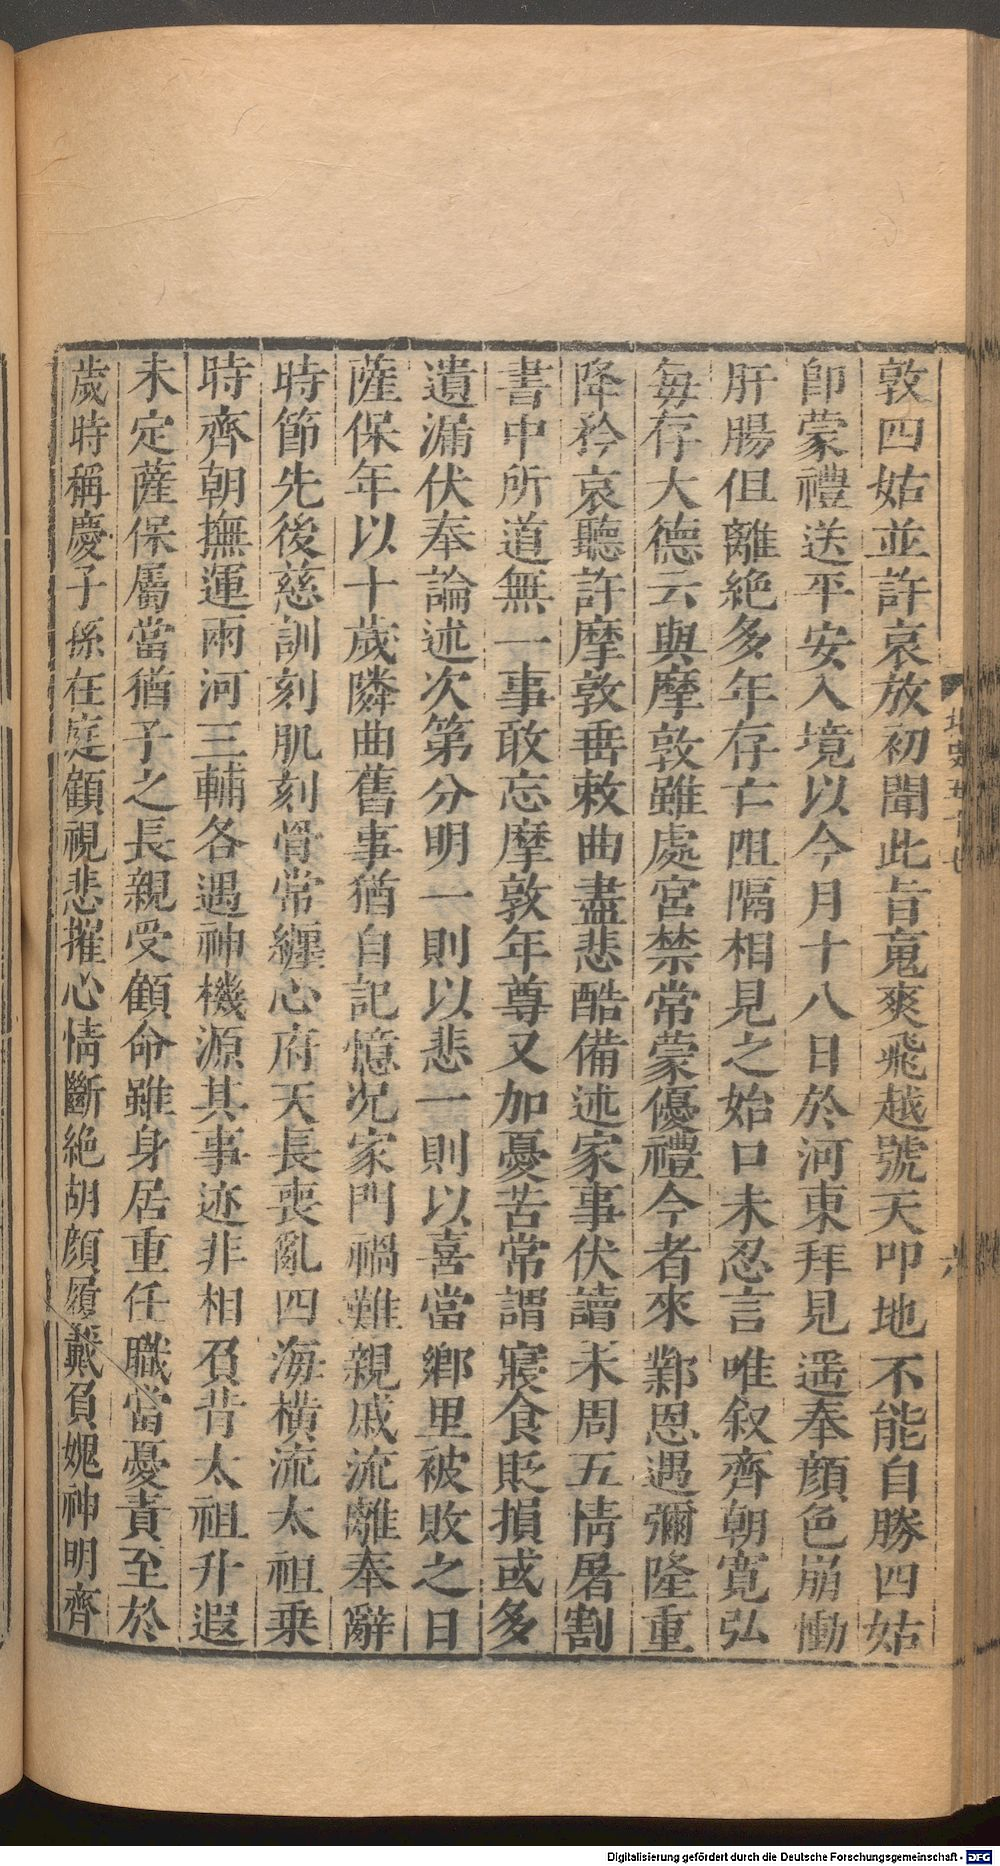 敦四姑並許哀放初聞此旨䰟爽飛越號天叩地不能自勝四姑
卽蒙禮送平安入境以今月十八日於河東拜見遥奉顔色崩慟
肝腸但離絶多年存亡阻隔相見之始口未忍言唯叙齊朝寛弘
每存大德云與摩敦雖處宮禁常蒙優禮今者來鄴恩遇彌隆重
降矜哀聽許摩敦垂敕曲盡悲酷備述家事伏讀未周五情屠割
書中所道無一事敢忘摩敦年尊又加憂苦常謂寢食貶損或多
遺漏伏奉論述次第分明一則以悲一則以喜當鄉里被敗之日
薩保年以十歲隣曲舊事猶自記憶况家門禍難親戚流離奉辭
時節先後慈訓刻肌刻骨常纏心府天長喪亂四海橫流太祖乗
時齊朝撫運兩河三輔各遇神機源其事迹非相負昔太祖升遐
未定薩保屬當猶子之長親受顧命雖身居重任職當憂責至於
歲時稱慶子孫在庭顧視悲摧心情斷絶胡顔履戴負媿神明齊
北史五十七
六
Digitalisierung gefördert durch die Deutsche Forschungsgemeinschaft - DFG